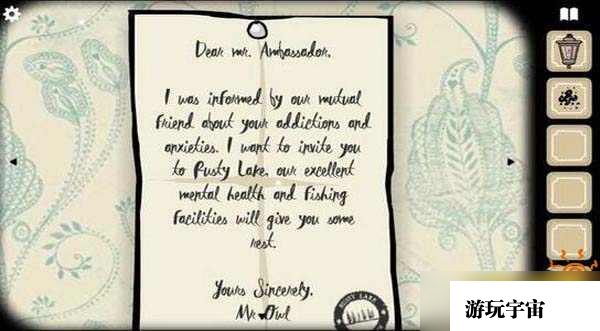 Dear mr. Ambassador,
I was informed by our mutual
friend about your addictions and
anxieties. I want to invite you
to Rusty Lake, our excellent
mental health and fishing
facilities will give you some
rest.
Yours Sincerely,
Mr Owl
RUSTY LAKE
游玩宇宙